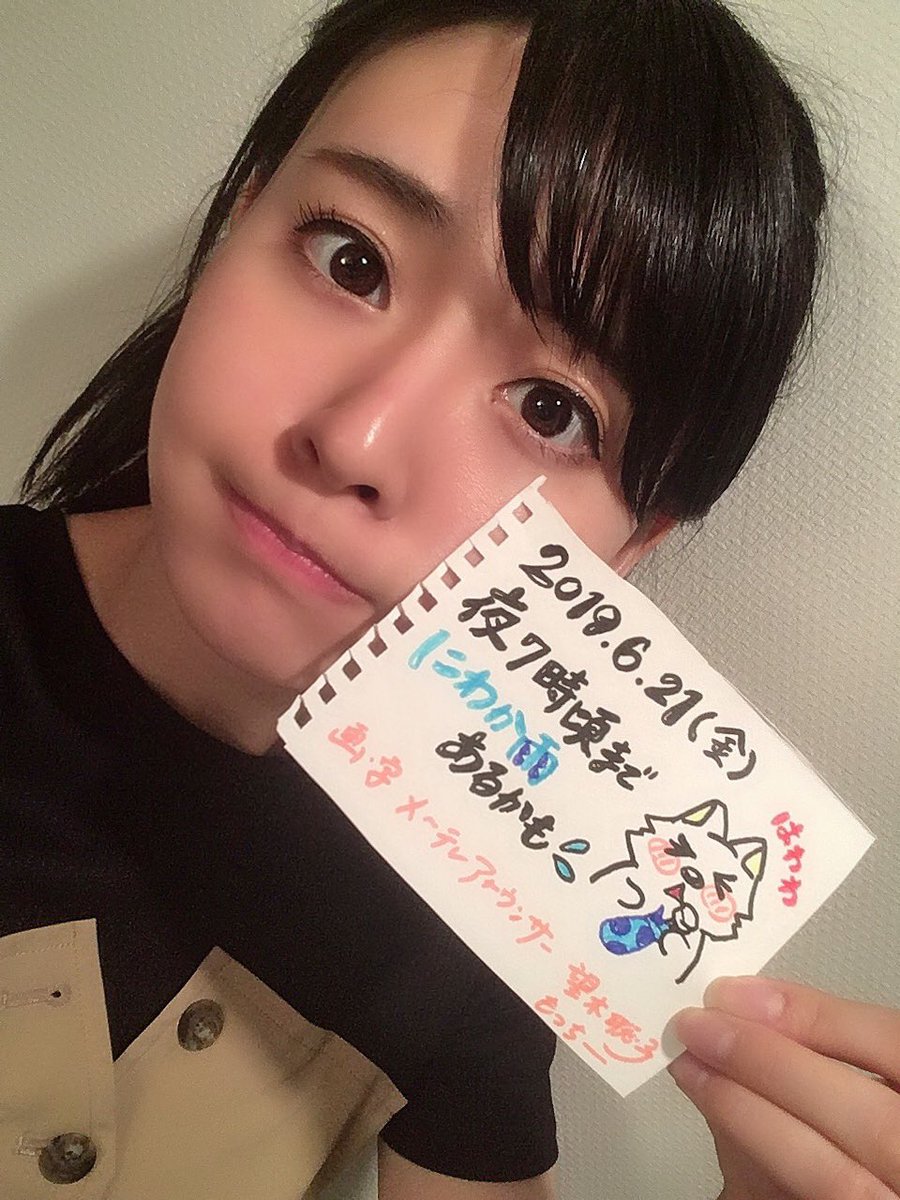 2019.6.21(金)
夜7時頃まで
にわか雨
あるかも
はわわ
画・字 メ〜テレアナウンサー
望木聡子
もっちー